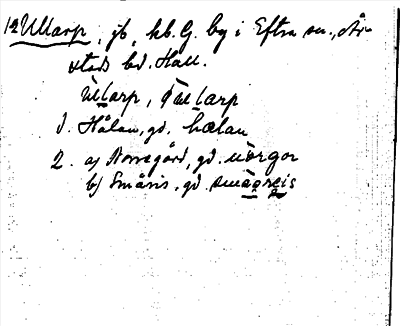 12 Ullarp, jb, kb. G. by i Eftra sn., År-
stads hd. Hall.
ùllarp, ùllarp
1. Hålan, gd. hælan
2. a) Norregård, gd. nòrgor
b) Småris, gd. smågreis